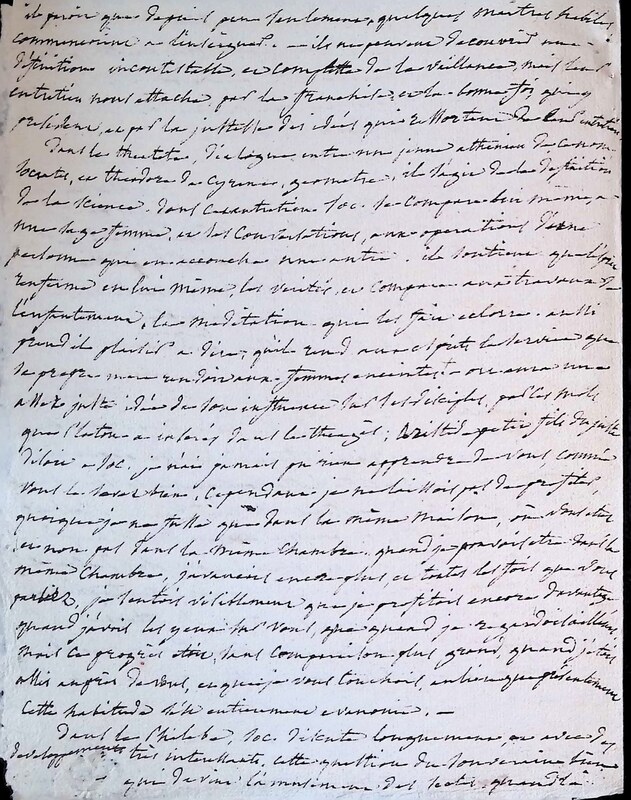 que depuis peu seulement, quelques maitres habiles
commencerent a l'enseigner. - ils ne peuvent decouvrir une
definition incontestable, et complette de la vaillance, mais leur
entretien nous attache par la franchise, et la bonne foy qui y
president, et par la justesse des idées qui ressortent de leur entretien
dans le theetete, dialogue entre un jeune athenien de ce nom
socrate, et theodore de cyrene, geometre, il s'agit de la definition
de la science. dans cet entretien Soc. se compare lui même, a
une sage femme, et ses conversations, aux operations d'une
personne qui en accouche une autre. il soutient que l'esprit
renferme en lui même, les verités, et compare aux travaux de
l'enfantement, la meditation qui les fait eclorre. aussi
prend il plaisir a dire, qu'il rend aux esprits le service que
sa propre mere rendoit aux femmes enceintes. - on aura une
assez juste idée de son influence sur ses disciples, par ces mots
que Platon a inserés dans le theagès; Aristide petit fils du juste
disoit a Soc. je n'ai jamais pu rien apprendre de vous, comme
vous le savez bien, cependant je ne laissois pas de profiter,
quoique je ne fusse que dans la même maison, où vous etiez
et non pas dans la même chambre. quand je pouvois etre dans la
même chambre, j'avançois encore plus, et toutes les fois que vous
parliez, je sentois visiblement que je profitois encore davantage
quand j'avois les yeux sur vous, que quand je regardois ailleurs,
mais ce progrès etoit, sans comparaison plus grand, quand j'etois
assis auprès de vous, et que je vous touchois, au lieu que presentement
cette habitude s'est entierement evanouie. -
Dans le Philebe, Soc. discute longuement, et avec des
developpements très interessants, cette question du souverain bien
que devint l'amusement des sectes, quand la